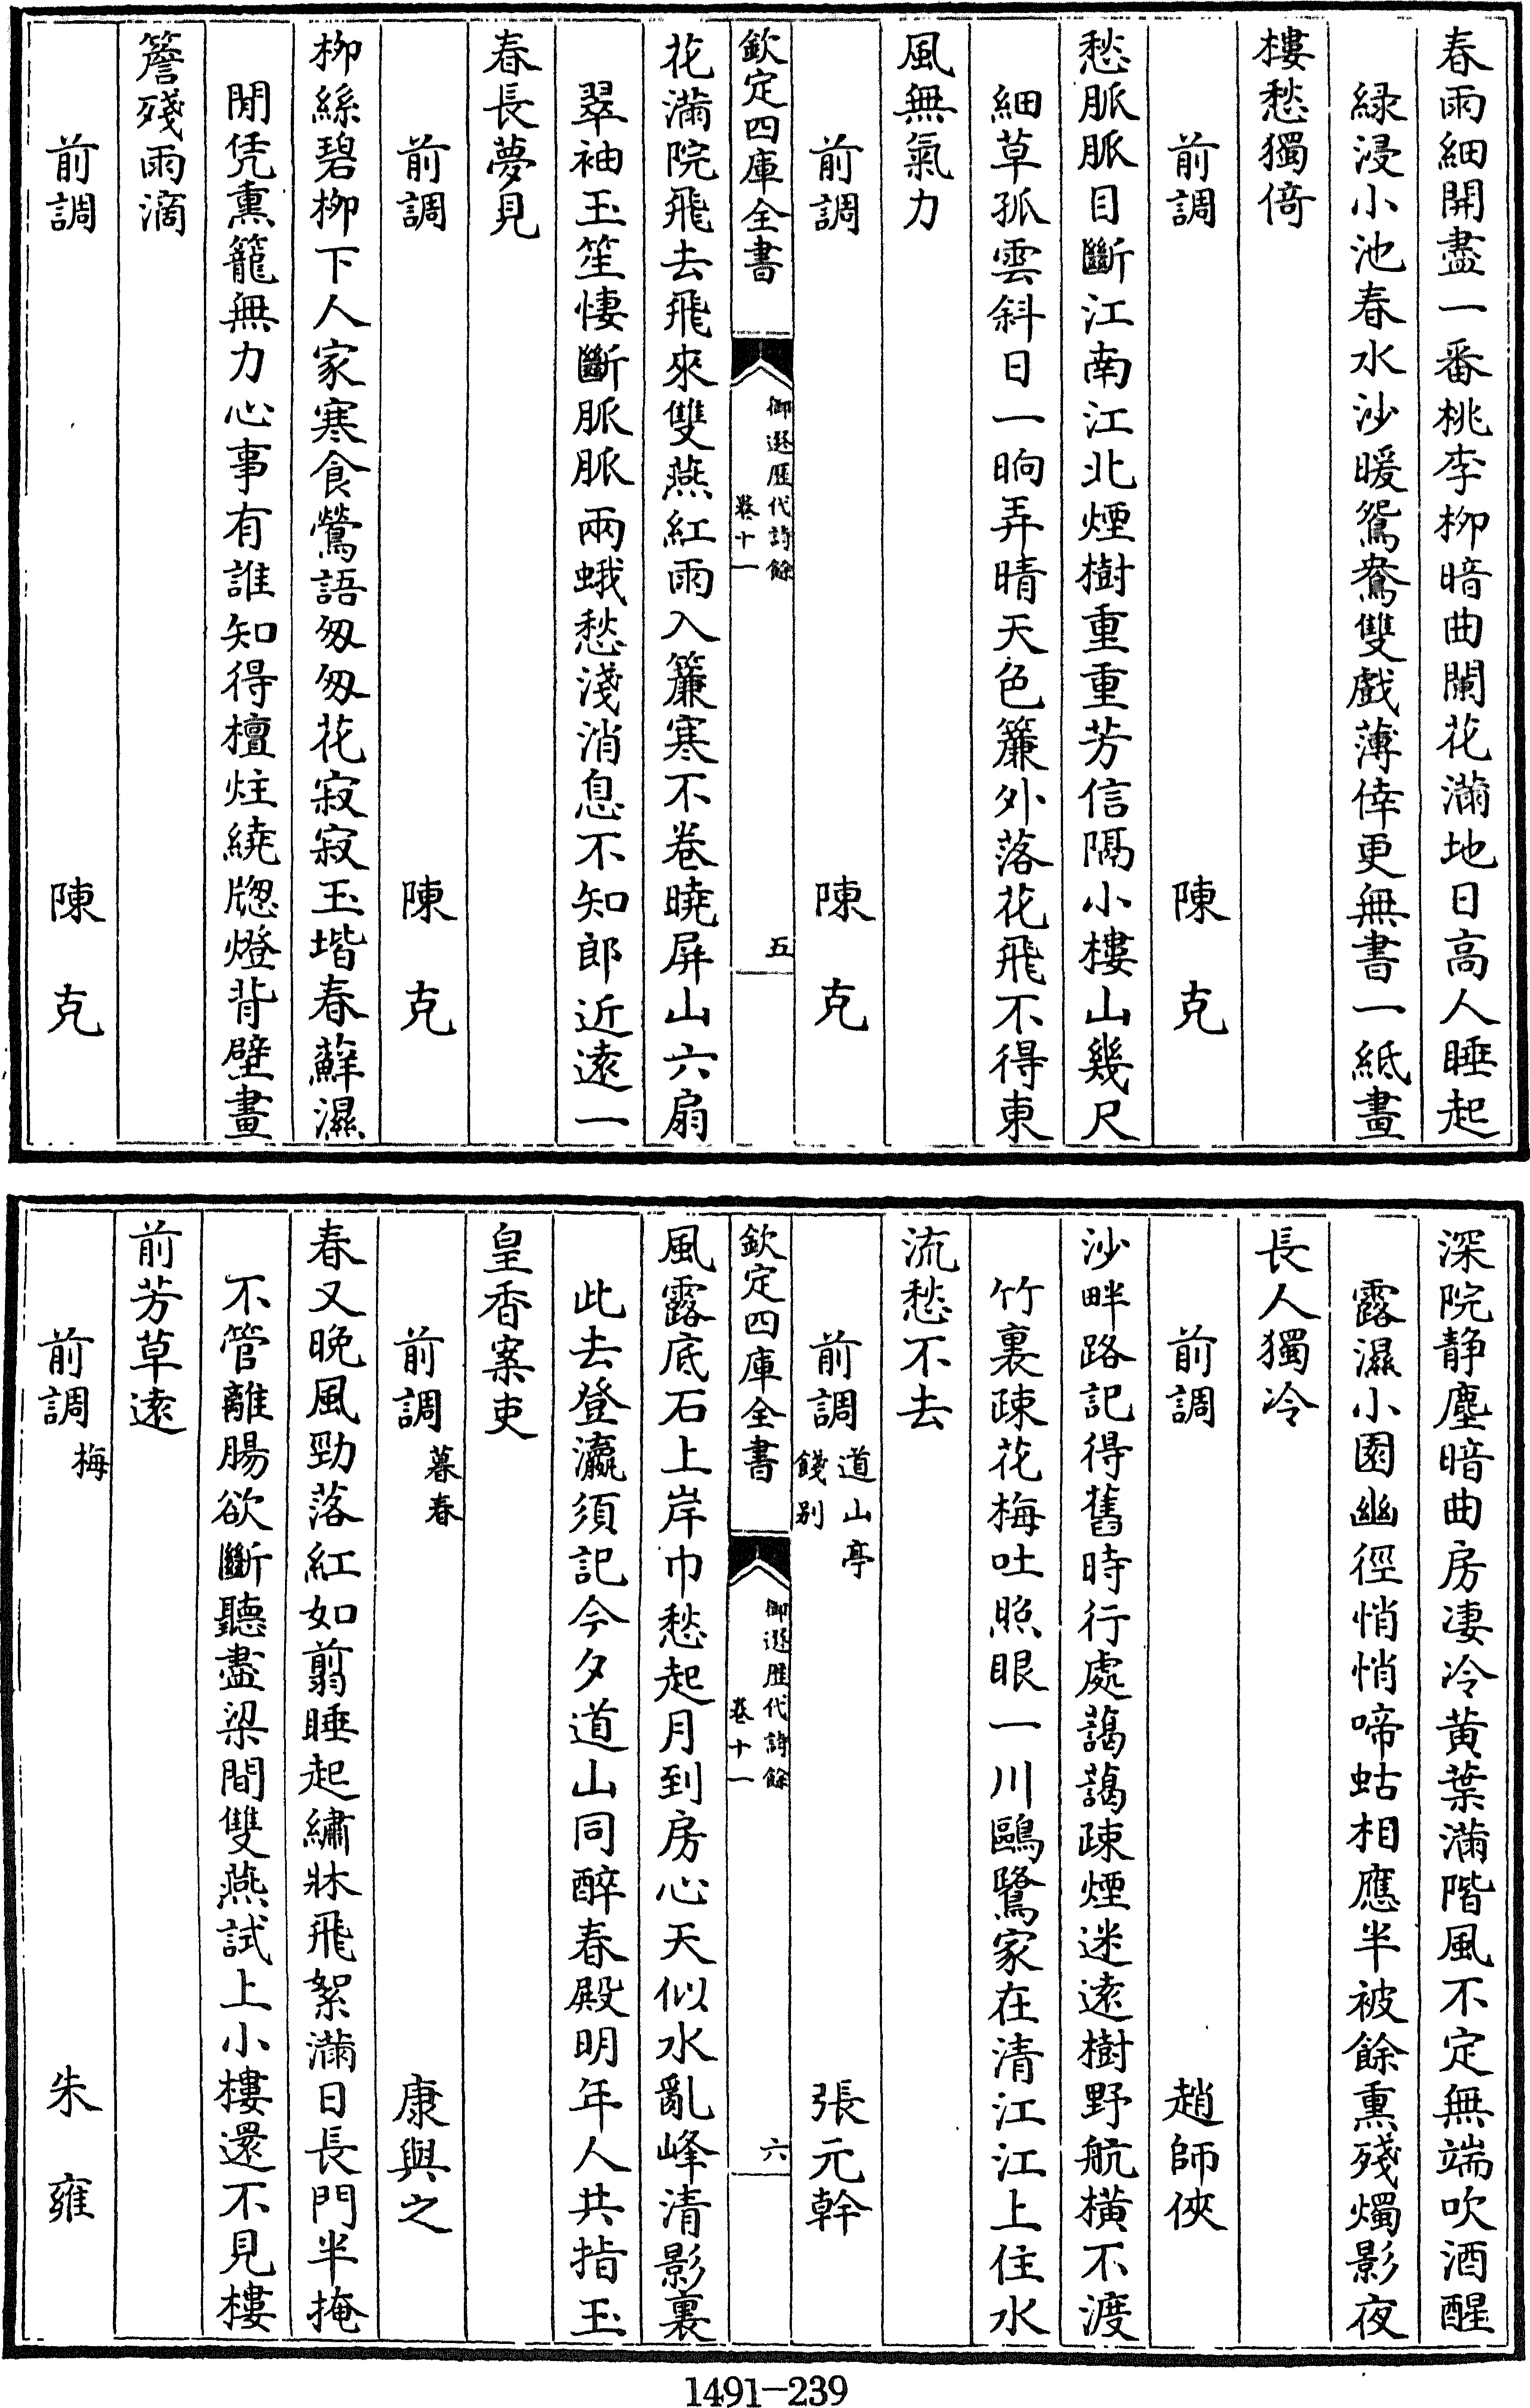 春雨細開盡一番桃李柳暗曲闌花滿地日高人睡起
緑浸小池春水沙暖鴛鴦雙戯薄倖更無書一紙畫
樓愁獨倚
前調　陳克
愁脈脈目斷江南江北煙樹重重芳信隔小樓山幾尺
細草孤雲斜日一晌弄晴天色簾外落花飛不得東
風無氣力
前調　陳克
欽定四庫全書　御選歷代詩餘卷十一　五
花滿院飛去飛來雙燕紅雨入簾寒不卷曉屏山六扇
翠袖玉笙悽斷脈脈兩蛾愁淺消息不知郎近逺一
春長夢見
前調　陳克
柳絲碧柳下人家寒食鶯語匆匆花寂寂玉堦春蘚濕
閒凭熏籠無力心事有誰知得檀炷繞牕燈背壁畫
簷殘雨滴
前調　陳克
深院静塵暗曲房凄冷黄葉滿階風不定無端吹酒醒
露濕小園幽徑悄悄啼蛄相應半被餘熏殘燭影夜
長人獨冷
前調　趙師俠
沙畔路記得舊時行處藹藹疎煙迷逺樹野航横不渡
竹裏疎花梅吐照眼一川鷗鷺家在清江江上住水
流愁不去
前調道山亭餞别　張元幹
欽定四庫全書　御選歷代詩餘卷十一　六
風露底石上岸巾愁起月到房心天似水亂峰清影裏
此去登瀛須記今夕道山同醉春殿明年人共指玉
皇香案吏
前調暮春　康與之
春又晚風勁落紅如翦睡起繡牀飛絮滿日長門半掩
不管離腸欲斷聽盡梁間雙燕試上小樓還不見樓
前芳草逺
前調梅　朱雍
1491-239